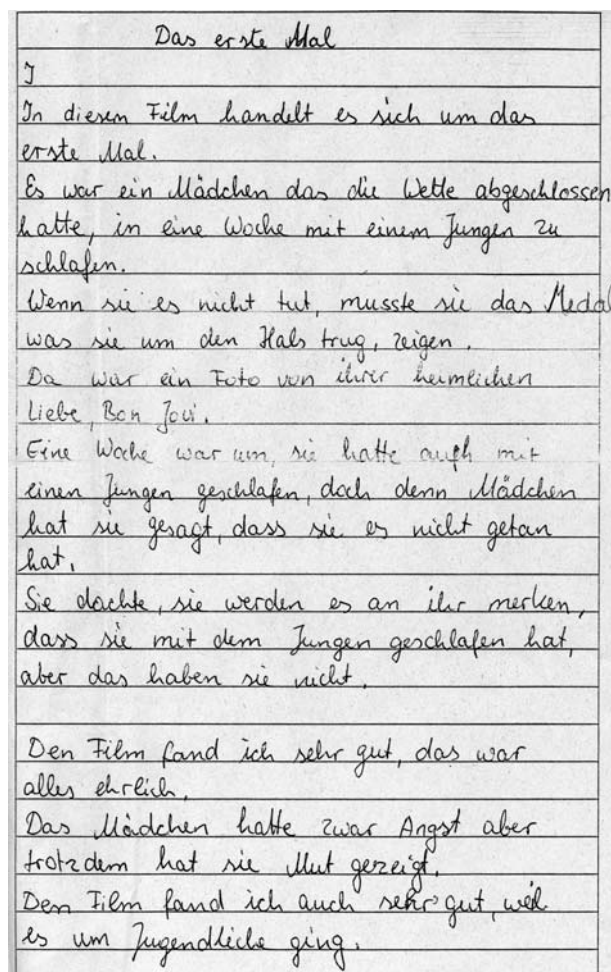 Das erste Mal
I
In diesem Film handelt es sich um das
erste Mal.
Es war ein Mädchen das die Wette abgeschlossen
hatte, in eine Woche mit einem Jungen zu
schlafen.
Wenn sie es nicht tut, musste sie das Medal
was sie um den Hals trug, zeigen.
Da war ein Foto von ihrer heimlichen
Liebe, Bon Jovi.
Eine Woche war um, sie hatte auch mit
einen Jungen geschlafen, doch denn Mädchen
hat sie gesagt, dass sie es nicht getan
hat.
Sie dachte, sie werden es an ihr merken,
dass sie mit dem Jungen geschlafen hat,
aber das haben sie nicht.
Den Film fand ich sehr gut, das war
alles ehrlich.
Das Mädchen hatte zwar Angst aber
trotzdem hat sie Mut gezeigt.
Den Film fand ich auch sehr gut, weil
es um Jugendliche ging.